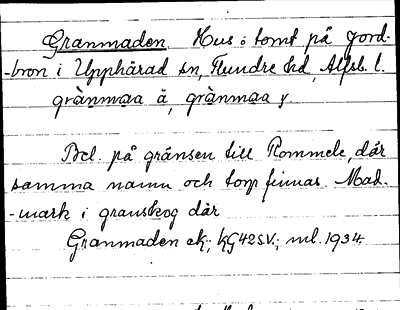 Granmaden. Hus o. tomt på Jord-
-bron i Upphärad sn, Flundre hd, Älfsb. l.
grànmaa ä, grànmaa y
Bel. på gränsen till Rommele, där
samma namn och torp finnas. Mad-
-mark i granskog där
Granmaden ek; kG42SV; ml. 1934.